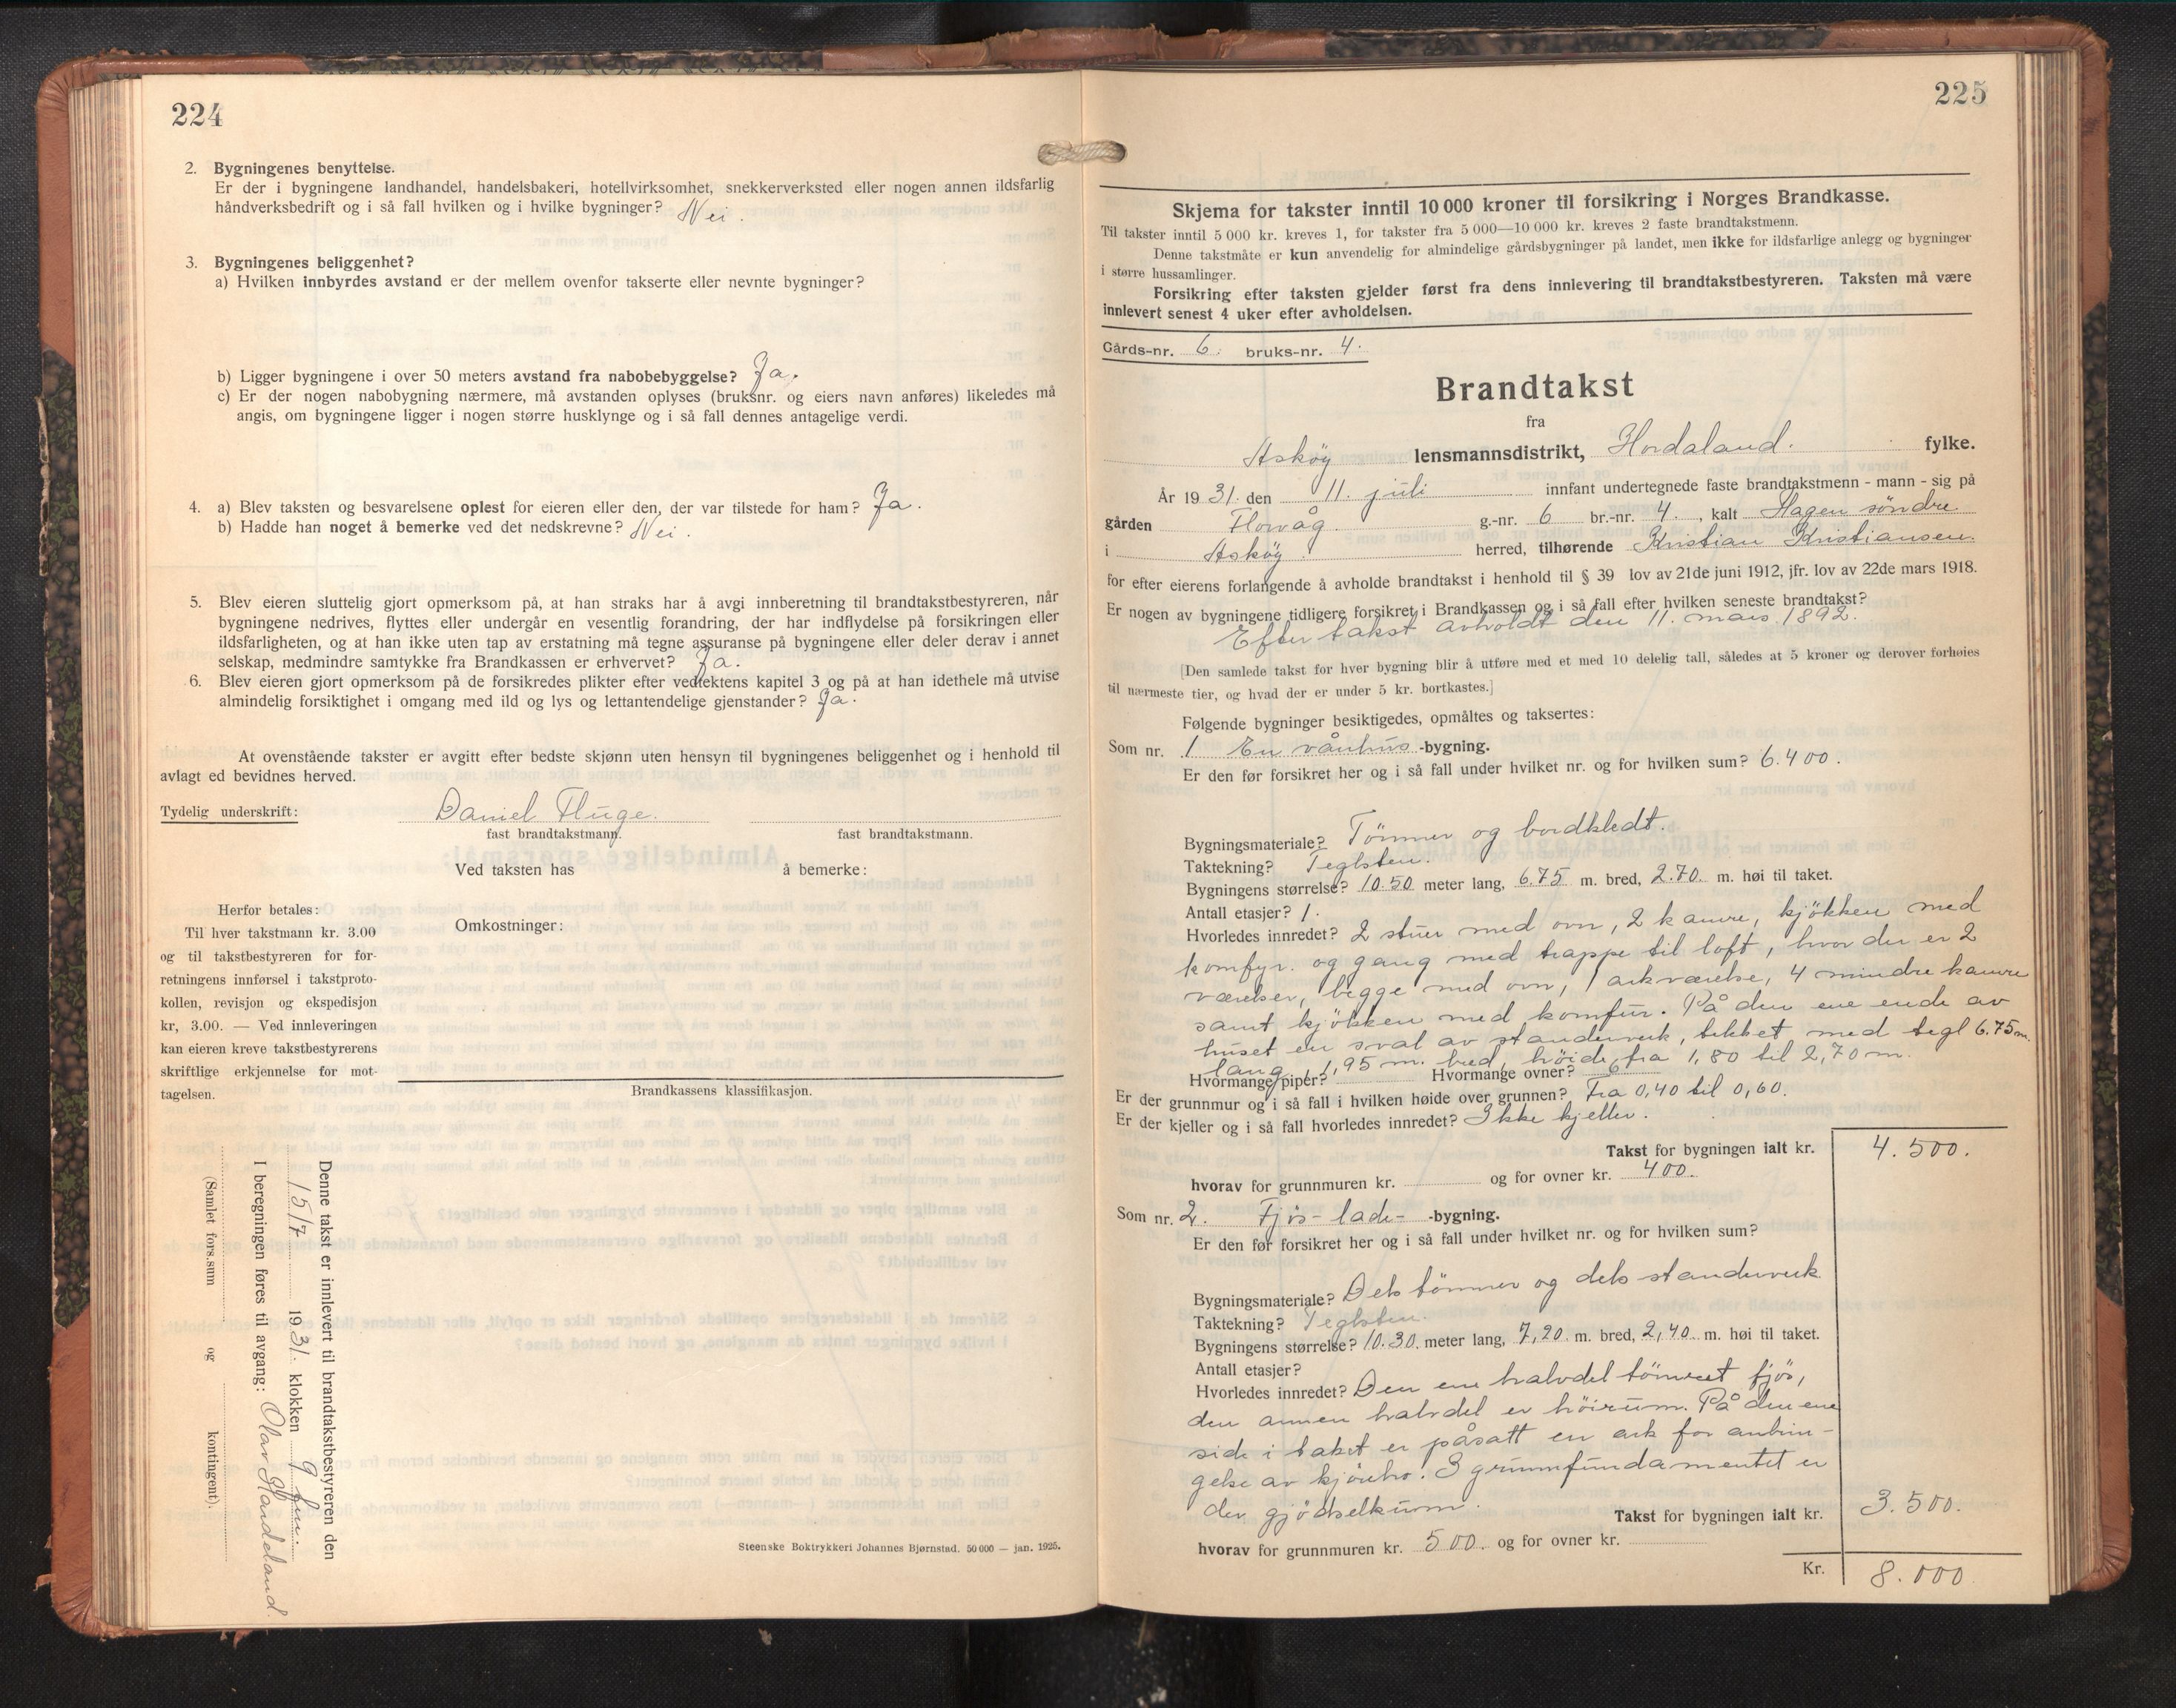 224
2. Bygningenes benyttelse.
Er der i bygningene landhandel, handelsbakeri, hotellvirksomhet, snekkerverksted eller nogen annen ildsfarlig
håndverksbedrift og i så fall hvilken og i hvilke bygninger? Nei.
3. Bygningenes beliggenhet?
a) Hvilken innbyrdes avstand er der mellem ovenfor takserte eller nevnte bygninger?
b) Ligger bygningene i over 50 meters avstand fra nabobebyggelse? Ja.
c) Er der nogen nabobygning nærmere, må avstanden oplyses (bruksnr. og eiers navn anføres) likeledes må
angis, om bygningene ligger i nogen større husklynge og i så fall dennes antagelige verdi.
4. a) Blev taksten og besvarelsene oplest for eieren eller den, der var tilstede for ham? Ja.
b) Hadde han noget å bemerke ved det nedskrevne? Nei.
5. Blev eieren sluttelig gjort opmerksom på, at han straks har å avgi innberetning til brandtakstbestyreren, når
bygningene nedrives, flyttes eller undergår en vesentlig forandring, der har indflydelse på forsikringen eller
ildsfarligheten, og at han ikke uten tap av erstatning må tegne assuranse på bygningene eller deler derav i annet
selskap, medmindre samtykke fra Brandkassen er erhvervet? Ja.
6. Blev eieren gjort opmerksom på de forsikredes plikter efter vedtektens kapitel 3 og på at han idethele må utvise
almindelig forsiktighet i omgang med ild og lys og lettantendelige gjenstander? Ja.
At ovenstående takster er avgitt efter bedste skjønn uten hensyn til bygningenes beliggenhet og i henhold til
avlagt ed bevidnes herved.
Tydelig underskrift: Daniel Fluge.
fast brandtakstmann. fast brandtakstmann.
Ved taksten has å bemerke:
Herfor betales:
Til hver takstmann kr. 3.00
og til takstbestyreren for for-
retningens innførsel i takstproto-
kollen, revisjon og ekspedisjon
kr, 3.00. — Ved innleveringen
kan eieren kreve takstbestyrerens
skriftlige erkjennelse for mot-
tagelsen.
Omkostninger:
Brandkassens klassifikasjon.
Denne takst er innlevert til brandtakstbestyreren den
15/7 1931. klokken 9 fmi
I beregningen føres til avgang: Olav Handeland.
(Samlet fors.sum og kontingent).
Steenske Boktrykkeri Johannes Bjørnstad. 50 000 — jan. 1925.
225
Skjema for takster inntil 10 000 kroner til forsikring i Norges Brandkasse.
Til takster inntil 5 000 kr. kreves 1, for takster fra 5 000—10 000 kr. kreves 2 faste brandtakstmenn.
Denne takstmåte er kun anvendelig for almindelige gårdsbygninger på landet, men ikke for ildsfarlige anlegg og bygninger
i større hussamlinger.
Forsikring efter taksten gjelder først fra dens innlevering til brandtakstbestyreren. Taksten må være
innlevert senest 4 uker efter avholdelsen.
Gårds-nr. 6. bruks-nr. 4.
Brandtakst
fra
Askøy lensmannsdistrikt, Hordaland. fylke.
År 1931. den 11. juli innfant undertegnede faste brandtakstmenn - mann - sig på
gården Florvåg. g.-nr. 6 br.-nr. 4., kalt Hagen söndre
i Askøy. herred, tilhørende Kristian Kristiansen.
for efter eierens forlangende å avholde brandtakst i henhold til § 39 lov av 21de juni 1912, jfr. lov av 22de mars 1918.
Er nogen av bygningene tidligere forsikret i Brandkassen og i så fall efter hvilken seneste brandtakst?
Efter takst avholdt den 11. mars. 1892.
[Den samlede takst for hver bygning blir å utføre med et med 10 delelig tall, således at 5 kroner og derover forhøies
til nærmeste tier, og hvad der er under 5 kr. bortkastes.]
Følgende bygninger besiktigedes, opmåltes og taksertes:
Som nr. 1 En vånhus-bygning.
Er den før forsikret her og i så fall under hvilket nr. og for hvilken sum? 6.400.
Bygningsmateriale? Tömmer og bordkledt.
Taktekning? Teglsten.
Bygningens størrelse? 10.50 meter lang, 6.75 m. bred, 2.70. m. høi til taket.
Antall etasjer? 1.
Hvorledes innredet? 2 stuer med ovn, 2 kamre, kjökken med
komfyr. og gang med trappe til loft, hvor der er 2
værelser, begge med ovn, 1 arkværelse, 4 mindre kamre
samt kjökken med komfur. På den ene ende av
huset en sval av standerverk, tekket med tegl 6.75 m.
lang, 1,95 m. bred, höide fra 1,80 til 2,70 m.
Hvormange piper? Hvormange ovner? 6
Er der grunnmur og i så fall i hvilken høide over grunnen? Fra 0,40 til 0,60.
Er der kjeller og i så fall hvorledes innredet? Ikke kjeller.
Takst for bygningen ialt kr. 4.500.
hvorav for grunnmuren kr. og for ovner kr. 400.
Som nr. 2. Fjös-lade- -bygning.
Er den før forsikret her og i så fall under hvilket nr. og for hvilken sum?
Bygningsmateriale? Dels tömmer og dels standerverk
Taktekning? Teglsten.
Bygningens størrelse? 10.30. meter lang, 7,20 m. bred, 2,40 m. høi til taket.
Antall etasjer?
Hvorledes innredet? Den ene halvdel tömret fjös,
den annen halvdel er höirum. På den ene
side i taket er påsatt en ark for anbrin-
gelse av kjörebro. I grunnfundamentet er
der gjödselkum.
Takst for bygningen ialt kr. 3.500.
hvorav for grunnmuren kr. 500. og for ovner kr.
Kr. 8.000